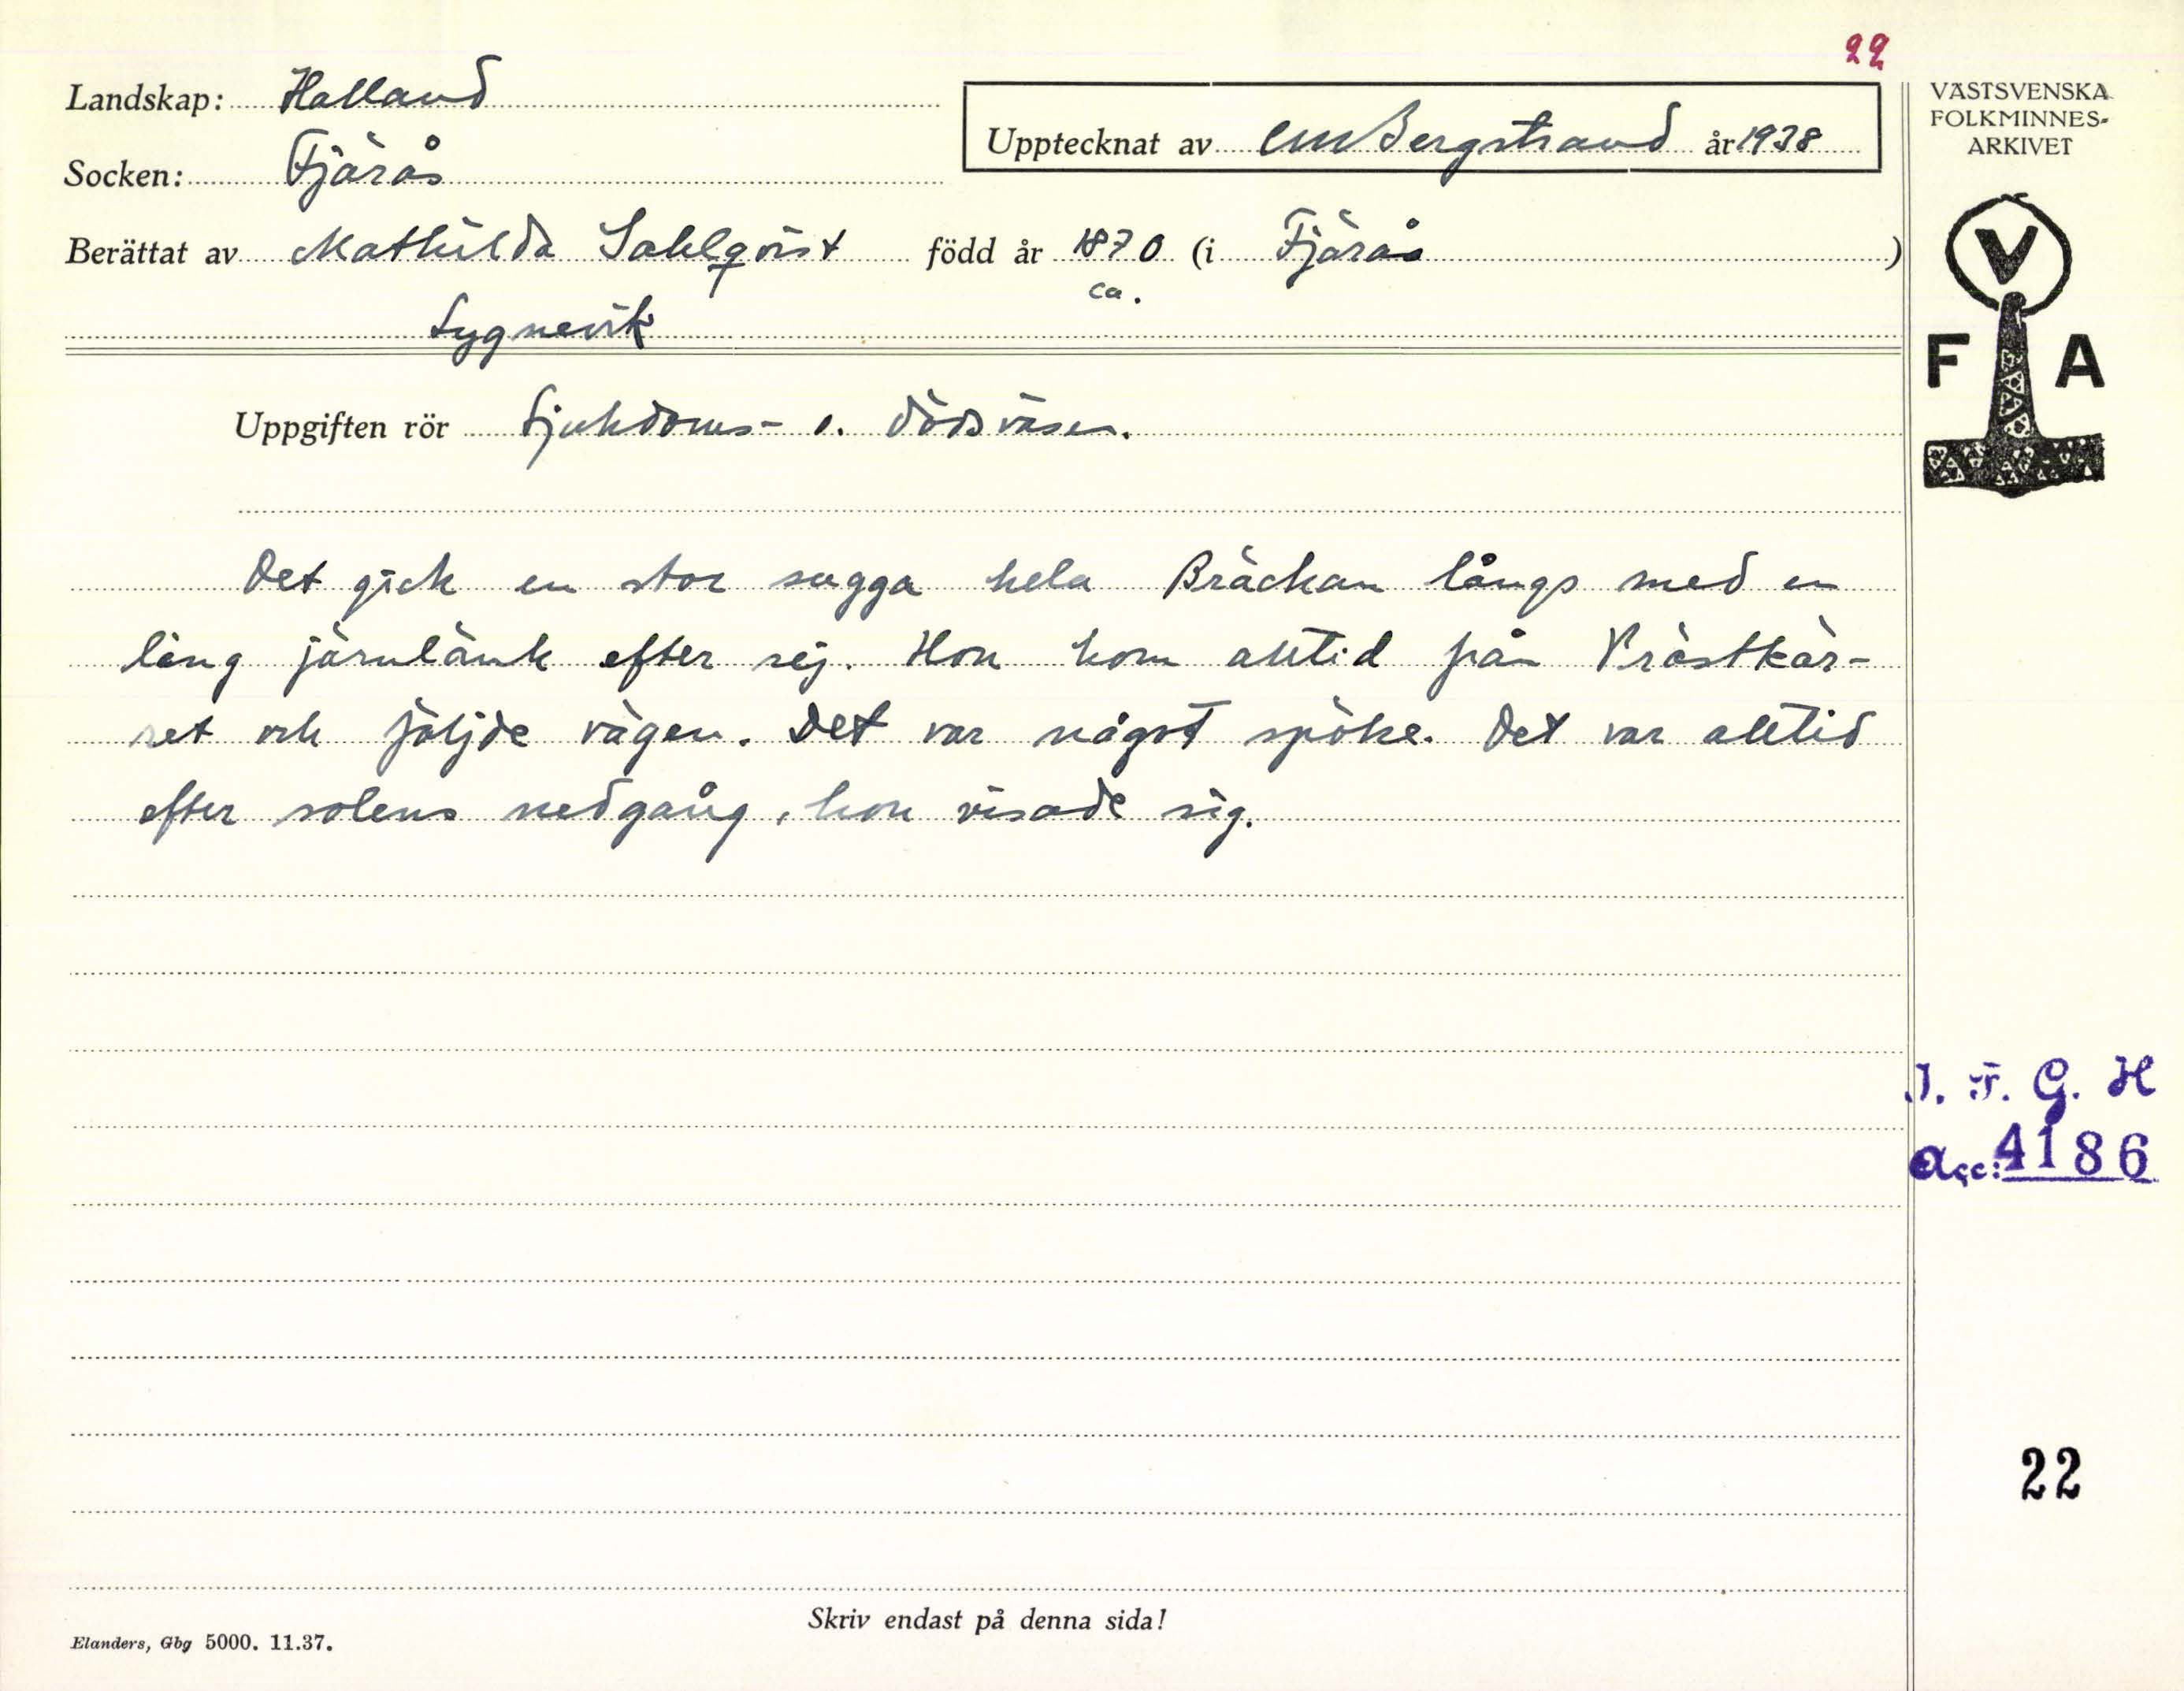 22
Landskap: Halland
Upptecknat av CMBergstrand år 1938
Socken: Fjärås
Berättat av Mathilda Sahlqvist född år 1870 (i Fjärås)
ca.
Lygnevik
Uppgiften rör Sjukdoms- o. dödsväsen.
Det gick en stor sugga hela Bräckan långs med en
lång järnlänk efter sej. Hon kom alltid från Prästkär-
ret och följde vägen. Det var något spöke. Det var alltid
efter solens nedgång, hon visade sig.
Skriv endast på denna sida!
Elanders, Gbg 5000. 11.37.
VÄSTSVENSKA
FOLKMINNES-
ARKIVET
V
F A
I. F. G. H
Acc: 4186
22